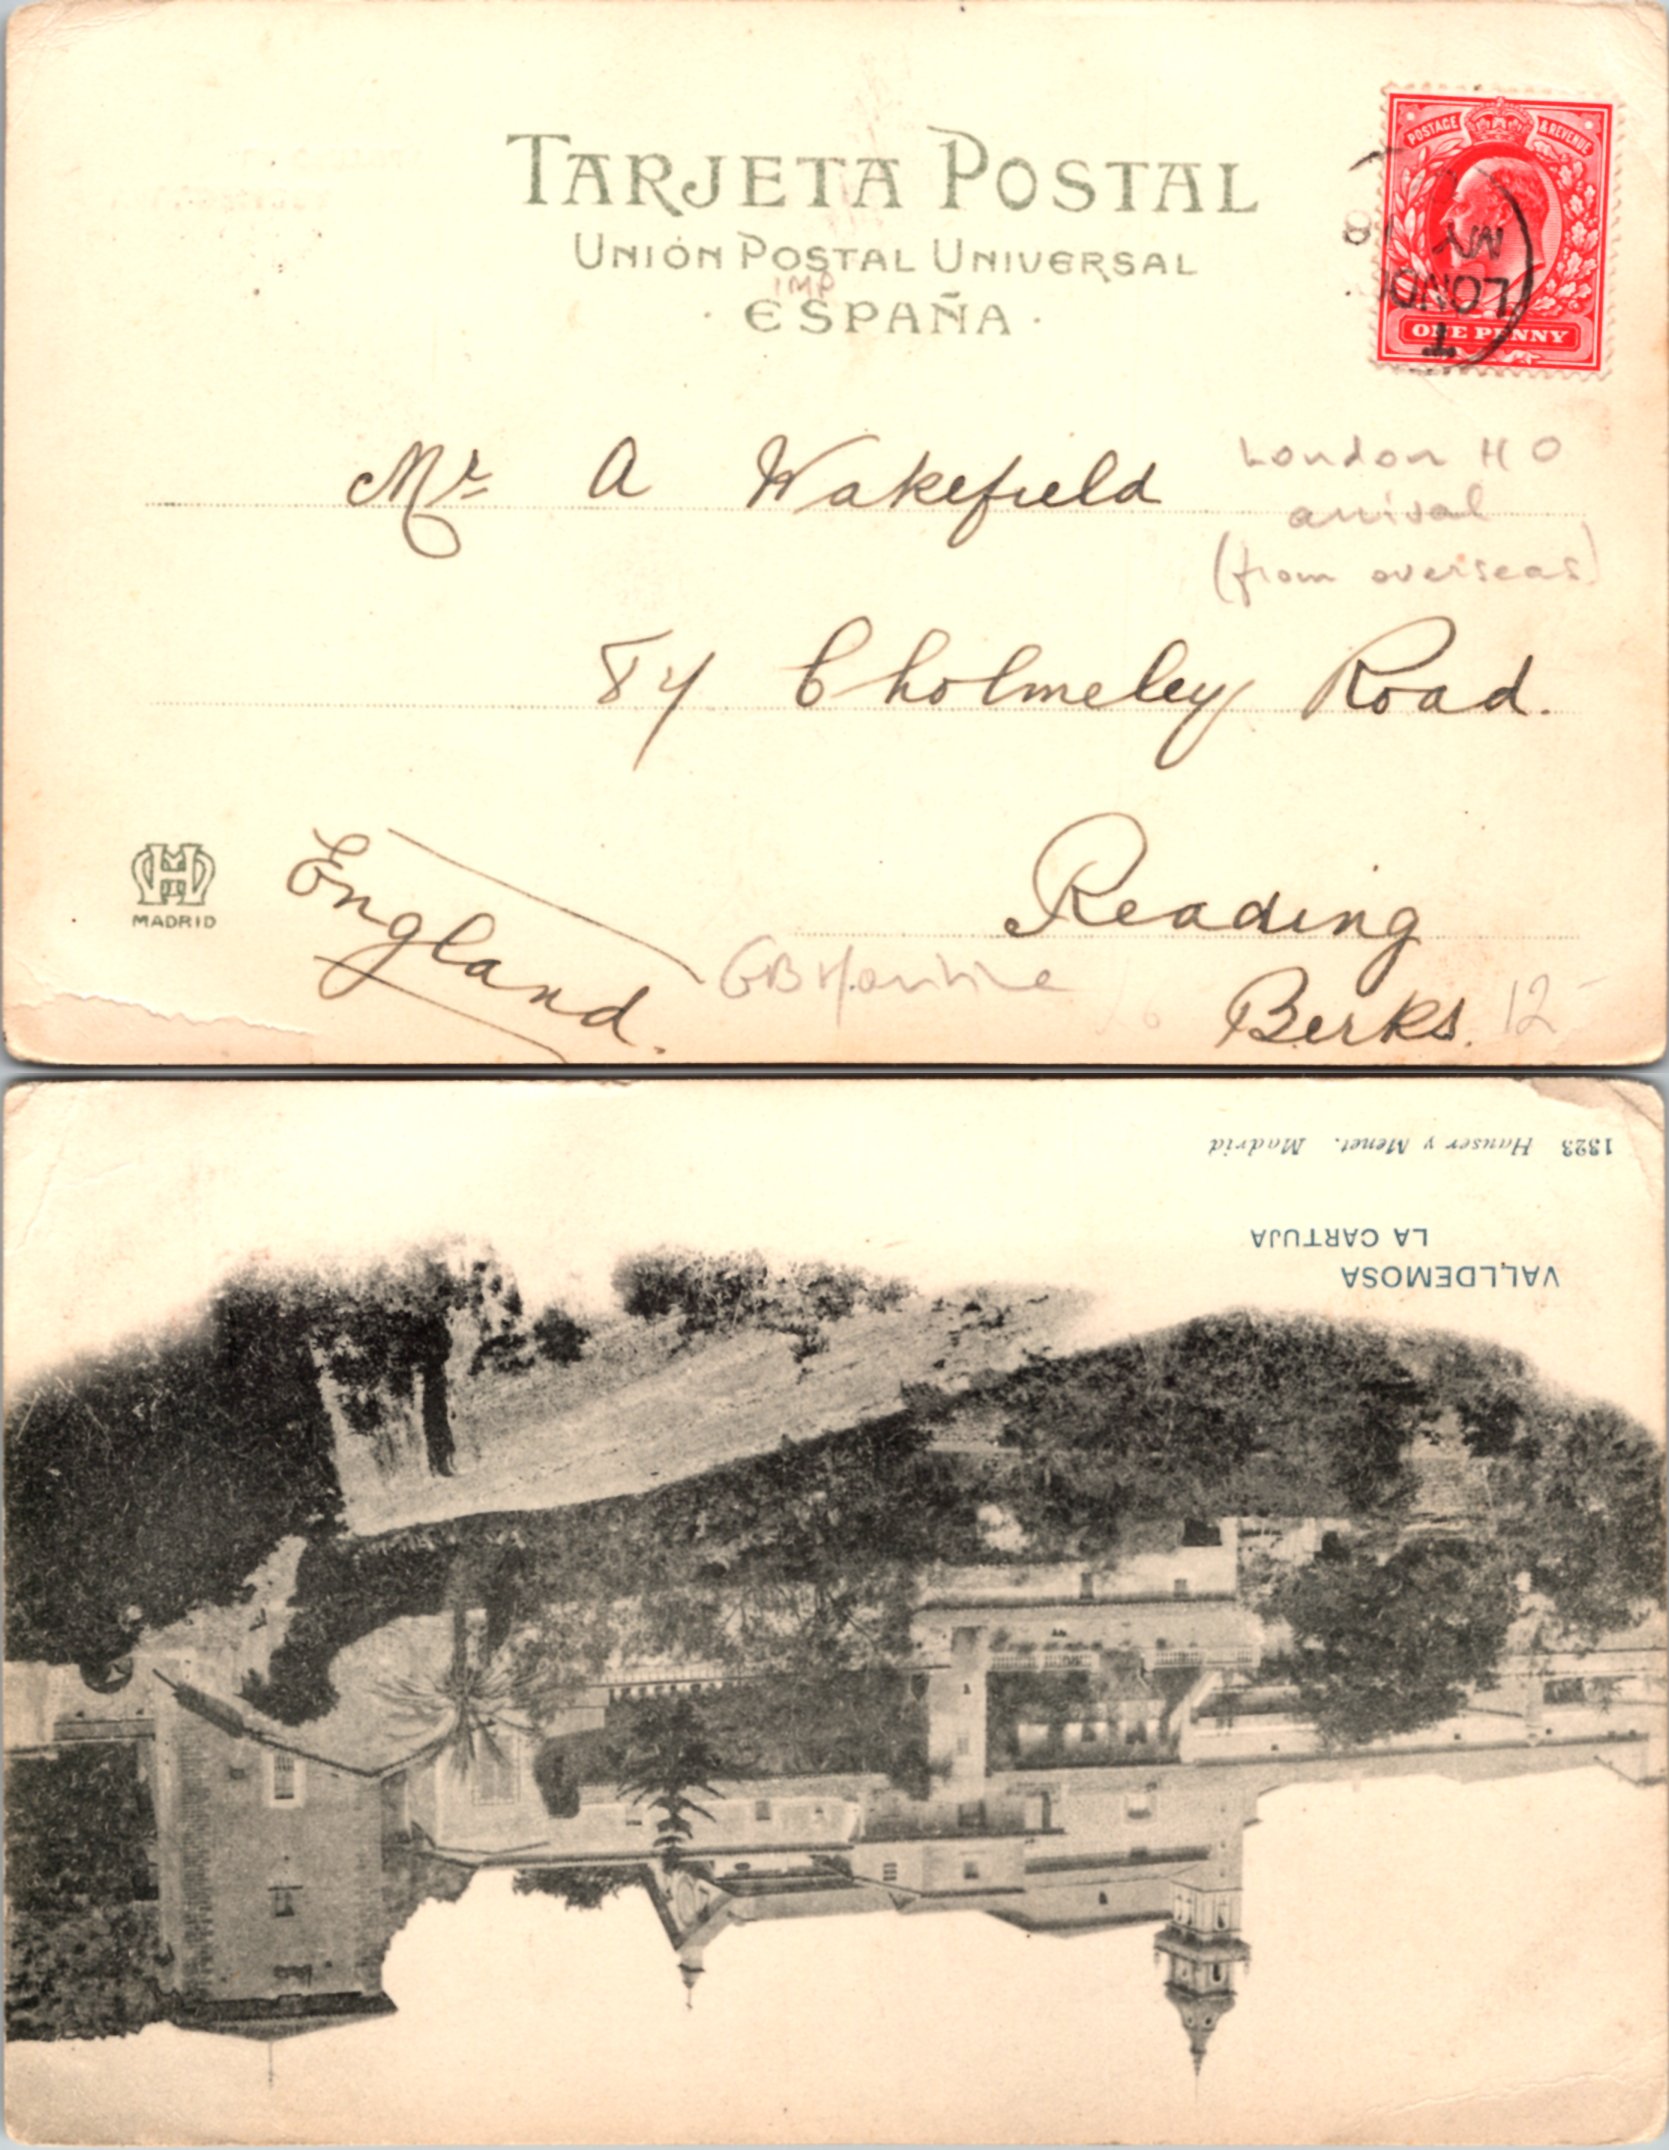 TARJETA POSTAL
UNIÓN POSTAL UNIVERSAL
IMP
· ESPAÑA ·
POSTAGE & REVENUE
MY
LOND
T
ONE PENNY
Mr A Wakefield
London H O
arrival
(from overseas)
84 Cholmeley Road.
MADRID
England.
Reading
GB Maritime
Berks.
12
1323 Hauser y Menet. Madrid
LA CARTUJA
VALLDEMOSA